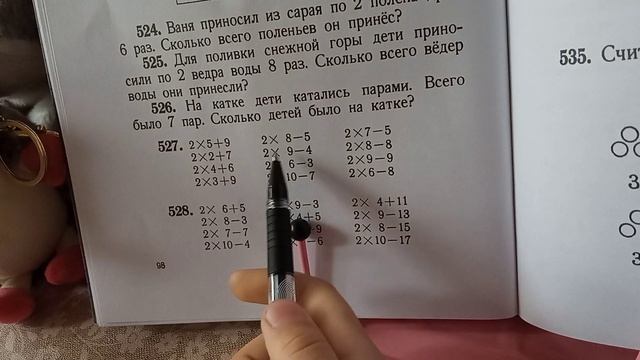 524. Ваня приносил из сарая по 2
6 раз. Сколько всего поленьев он принёс?
525. Для поливки снежной горы дети прино-
сили по 2 ведра воды 8 раз. Сколько всего вёдер
воды они принесли?
526. На катке дети катались парами. Всего
было 7 пар. Сколько детей было на катке?
527. 2×5+9 2× 8−5 2×7−5
2×2+7 2× 9−4 2×8−8
2×4+6 6−3 2×9−9
2×3+9 10−7 2×6−8
528. 2× 6+5 ×9−3 2× 4+11
2× 8−3 ×4+5 2× 9−13
2× 7−7 −9 2× 8−15
2×10−4 −6 2×10−17
98
535. Счит